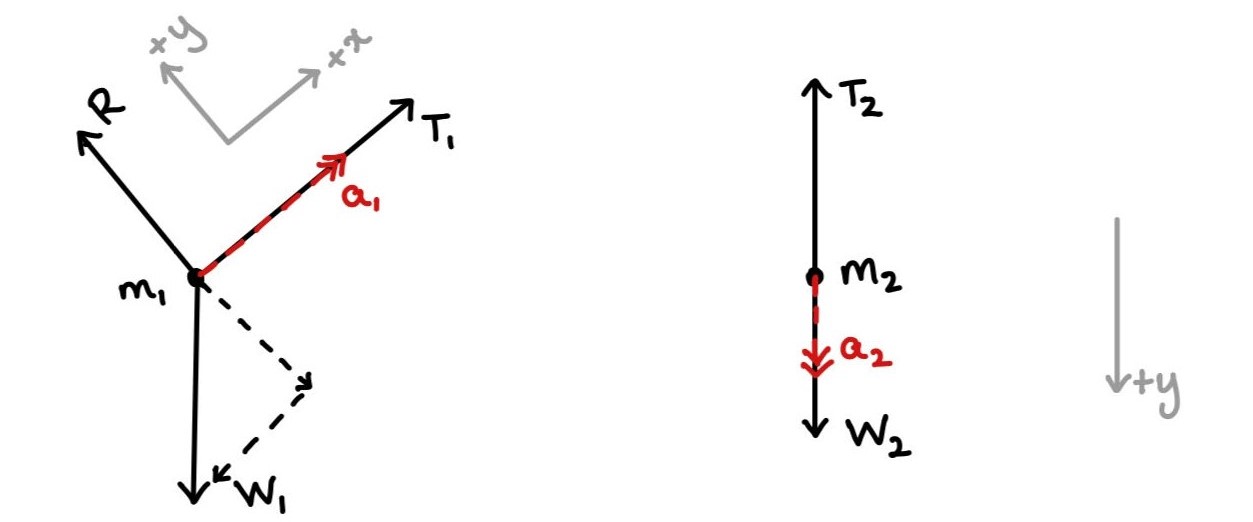 +y
+x
R
T₁
a₁
m₁
W₁
T₂
m₂
a₂
W₂
+y